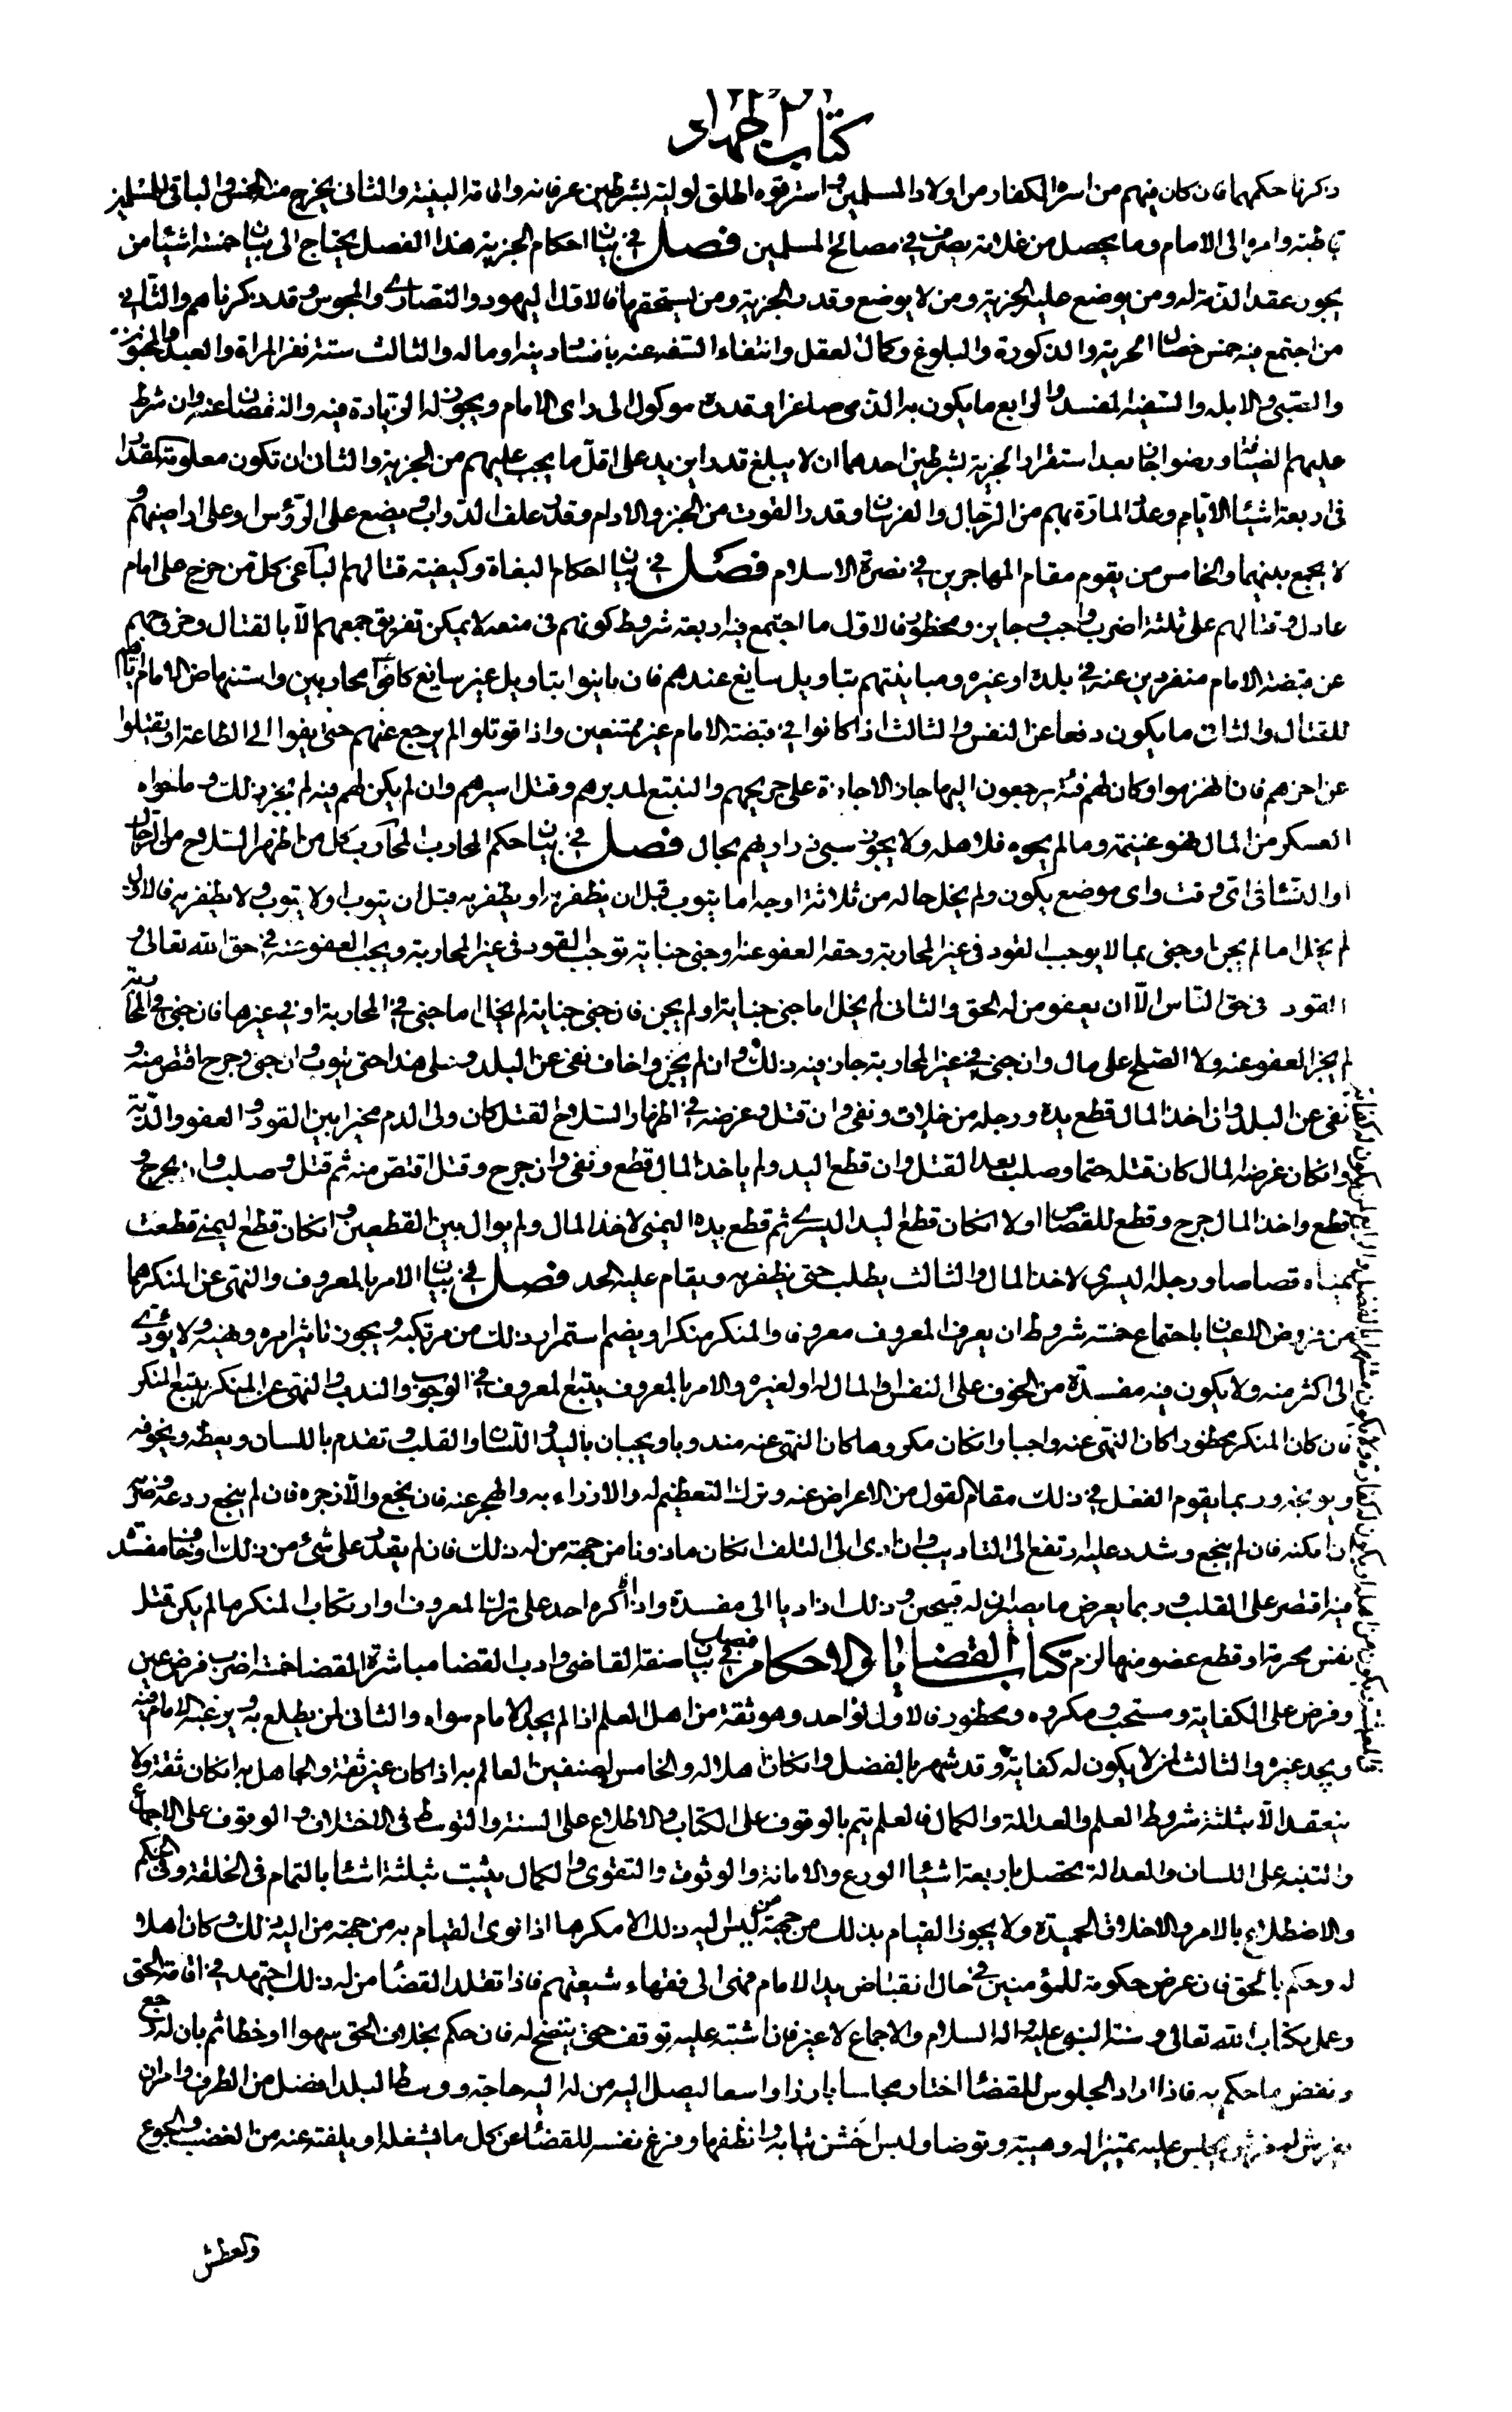 كتاب الجهاد
ذكرنا حكمهما فان كان فيهم من اسره الكفار من اولاد المسلمين و استرقوه اطلق لوليه بشرطين عرفانه واقامة البينة والثاني يخرج منه الخمس والباقي للمسلمين
قاطبة وامره الى الامام وما يحصل من غلاته يصرف في مصالح المسلمين فصل في بيان احكام الجزية هذا الفصل يحتاج الى بيان خمسة اشياء من
يجوز عقد الذمة له ومن يوضع عليه الجزية ومن لا يوضع وقدر الجزية ومن يستحقها فالاول اليهود والنصارى والمجوس وقد ذكرناهم والثاني
من اجتمع فيه خمس خصال الحرية والذكورة والبلوغ وكمال العقل وانتفاء السفه عنه بافساد دينه او ماله والثالث ستة نفر المراة والعبد والمجنون
والصبي والابله والسفيه المفسد والرابع ما يكون به الذمي صاغرا وقدره موكول الى راى الامام ويجوز له الزيادة فيه والنقصان عنه وان شرط
عليهم الضيافة ورضوا جاز بعد استقرار الجزية بشرطين احدهما ان لا يبلغ قدرا يزيد على اقل ما يجب عليهم من الجزية والثاني ان تكون معلومة المقدار
في اربعة اشياء الايام وعدد المارة بهم من الرجال والفرسان وقدر القوت من الخبز والادام وقدر علف الدواب ويضع على الرؤس او على اراضيهم و
لا يجمع بينهما والخامس من يقوم مقام المهاجرين في نصرة الاسلام فصل في بيان احكام البغاة وكيفية قتالهم الباغي كل من خرج على امام
عادل وقتالهم على ثلثة اضرب واجب وجايز ومحظور فالاول ما اجتمع فيه اربعة شروط كونهم في منعة لا يمكن تفريق جمعهم الا بالقتال وخروجهم
عن قبضة الامام منفردين عنه في بلدة او غيره ومباينتهم بتاويل سايغ عندهم فان باينوا بتاويل غير سايغ كانوا محاربين واستنهاض الامام اياهم
للقتال والثاني ما يكون دفعا عن النفس والثالث اذا كانوا في قبضة الامام غير ممتنعين واذا قوتلوا لم يرجع عنهم حتى يفيئوا الى الطاعة او يقتلوا
عن اخرهم فان انهزموا وكان لهم فئة يرجعون اليها جاز الاجازة على جريحهم والتتبع لمدبرهم وقتل اسيرهم وان لم يكن لهم فئة لم يجز ذلك وما حواه
العسكر من المال فهو غنيمة وما لم يحوه فلاهله ولا يجوز سبي ذراريهم بحال فصل في بيان حكم المحارب المحارب كل من اظهر السلاح من الرجال
او النساء في اى وقت واى موضع يكون ولم يخل حاله من ثلاثة اوجه اما يتوب قبل ان يظفر به او يظفر به قبل ان يتوب او لا يتوب ولا يظفر به فالاول
لم يخل اما لم يجن او جنى بما لا يوجب القود في غير المحاربة وحقه العفو عنه او جنى جناية توجب القود في غير المحاربة ويجب العفو عنه في حق الله تعالى و
القود في حق الناس الا ان يعفو من له الحق والثاني لم يخل اما جنى جناية او لم يجن فان جنى جناية لم يخل اما جنى في المحاربة او في غيرها فان جنى في المحاربة
لم يجز العفو عنه ولا الصلح على مال وان جنى في غير المحاربة جاز فيه ذلك وان لم يجن واخاف نفى عن البلد وعلى هذا حتى يتوب وان جنى وجرح اقتص منه و
نفى عن البلد وان اخذ المال قطع يده ورجله من خلاف ونفى وان قتل وغرضه في اظهار السلاح القتل كان ولى الدم مخيرا بين القود والعفو والدية
وان كان غرضه المال كان قتله حتما وصلب بعد القتل وان قطع اليد ولم ياخذ المال قطع ونفى وان جرح وقتل اقتص منه ثم قتل وصلب وان جرح و
قطع واخذ المال جرح وقطع للقصاص اولا ان كان قطع اليد اليسرى ثم قطع يده اليمنى لاخذ المال ولم يوال بين القطعين وان كان قطع اليمنى قطعت
يمناه قصاصا ورجله اليسرى لاخذ المال والثالث يطلب حتى يظفر به ويقام عليه الحد فصل في بيان الامر بالمعروف والنهى عن المنكر هما
من فروض الاعيان باجتماع خمسة شروط ان يعرف المعروف معروفا والمنكر منكرا ويضم استمرار ذلك من مرتكبه ويجوز تاثير امره ونهيه ولا يؤدى
الى اكثر منه ولا يكون فيه مفسدة من الخوف على النفس والمال له او لغيره والامر بالمعروف يتبع المعروف في الوجوب والندب والنهى عن المنكر يتبع المنكر
فان كان المنكر محظورا كان النهى عنه واجبا وان كان مكروها كان النهى عنه مندوبا ويجبان باليد واللسان والقلب ويقدم باللسان ويعظه ويخوفه
ويوبخه وربما يقوم الفعل في ذلك مقام القول من الاعراض عنه وترك التعظيم له والازراء به والهجر عنه فان نجع والا زجره فان لم ينجع ردعه وضربه
ان امكنه فان لم ينجع وشدد عليه ارتفع الى التاديب وان ادى الى التلف ان كان ماذونا من جهة من له ذلك فان لم يقدر على شئ من ذلك او خاف مفسدة
فيه اقتصر على القلب وربما يعرض ما يصيران له قبيحين وذلك اذا اديا الى مفسدة واذا اكره احد على ترك المعروف او ارتكاب المنكر ما لم يكن قتل
نفس محرمة او قطع عضو منها لزم كتاب القضايا والاحكام فصل في بيان صفة القاضي وادب القضا مباشرة القضا خمسة اضرب فرض عين
وفرض على الكفاية ومستحب ومكروه ومحظور فالاول لواحد وهو ثقة من اهل العلم اذا لم يجد الامام سواه والثاني لمن يطلع به ويرغبه الامام فيه
ويجد غيره والثالث لمن لا يكون له كفاية وقد شهر بالفضل وان كان اهلا له والخامس لصنفين العالم به اذا كان غير ثقة والجاهل به ان كان ثقة ولا
ينعقد الا بثلثة شروط العلم والعدالة والكمال فالعلم يتم بالوقوف على الكتاب والاطلاع على السنة والتوسط في الاختلاف والوقوف على الاجماع
والتنبه على اللسان والعدالة تحصل باربعة اشياء الورع والامانة والوثوق والتقوى والكمال يثبت بثلثة اشيا بالتمام في الخلقة وفى الحكم
والاضطلاع بالامر والاخلاق الحميدة ولا يجوز القيام بذلك من جهة من ليس اليه ذلك الا مكرها اذا نوى القيام به من جهة من اليه ذلك وكان اهلا
له وحكم بالحق فان عرض حكومة للمؤمنين في حال انقباض يد الامام فهى الى فقهاء شيعتهم فاذا تقلد القضاء من له ذلك اجتهد في اقامة الحق
وعمل بكتاب الله تعالى وسنة النبي عليه واله السلام والاجماع لا غير فان اشتبه عليه توقف حتى يتضح له فان حكم بخلاف الحق سهوا او خطا ثم بان له رجع
ونقض ما حكم به فاذا اراد الجلوس للقضاء اختار مجلسا بارزا واسعا ليصل اليه من له اليه حاجة ووسط البلد افضل من الطرف وامر ان
يفرش له فرش يجلس عليه تميزا له وهيبة وتوضا ولبس اخشن ثيابه وانظفها وفرغ نفسه للقضاء عن كل ما يشغله او يلفته عنه من الغضب والجوع
والعطش